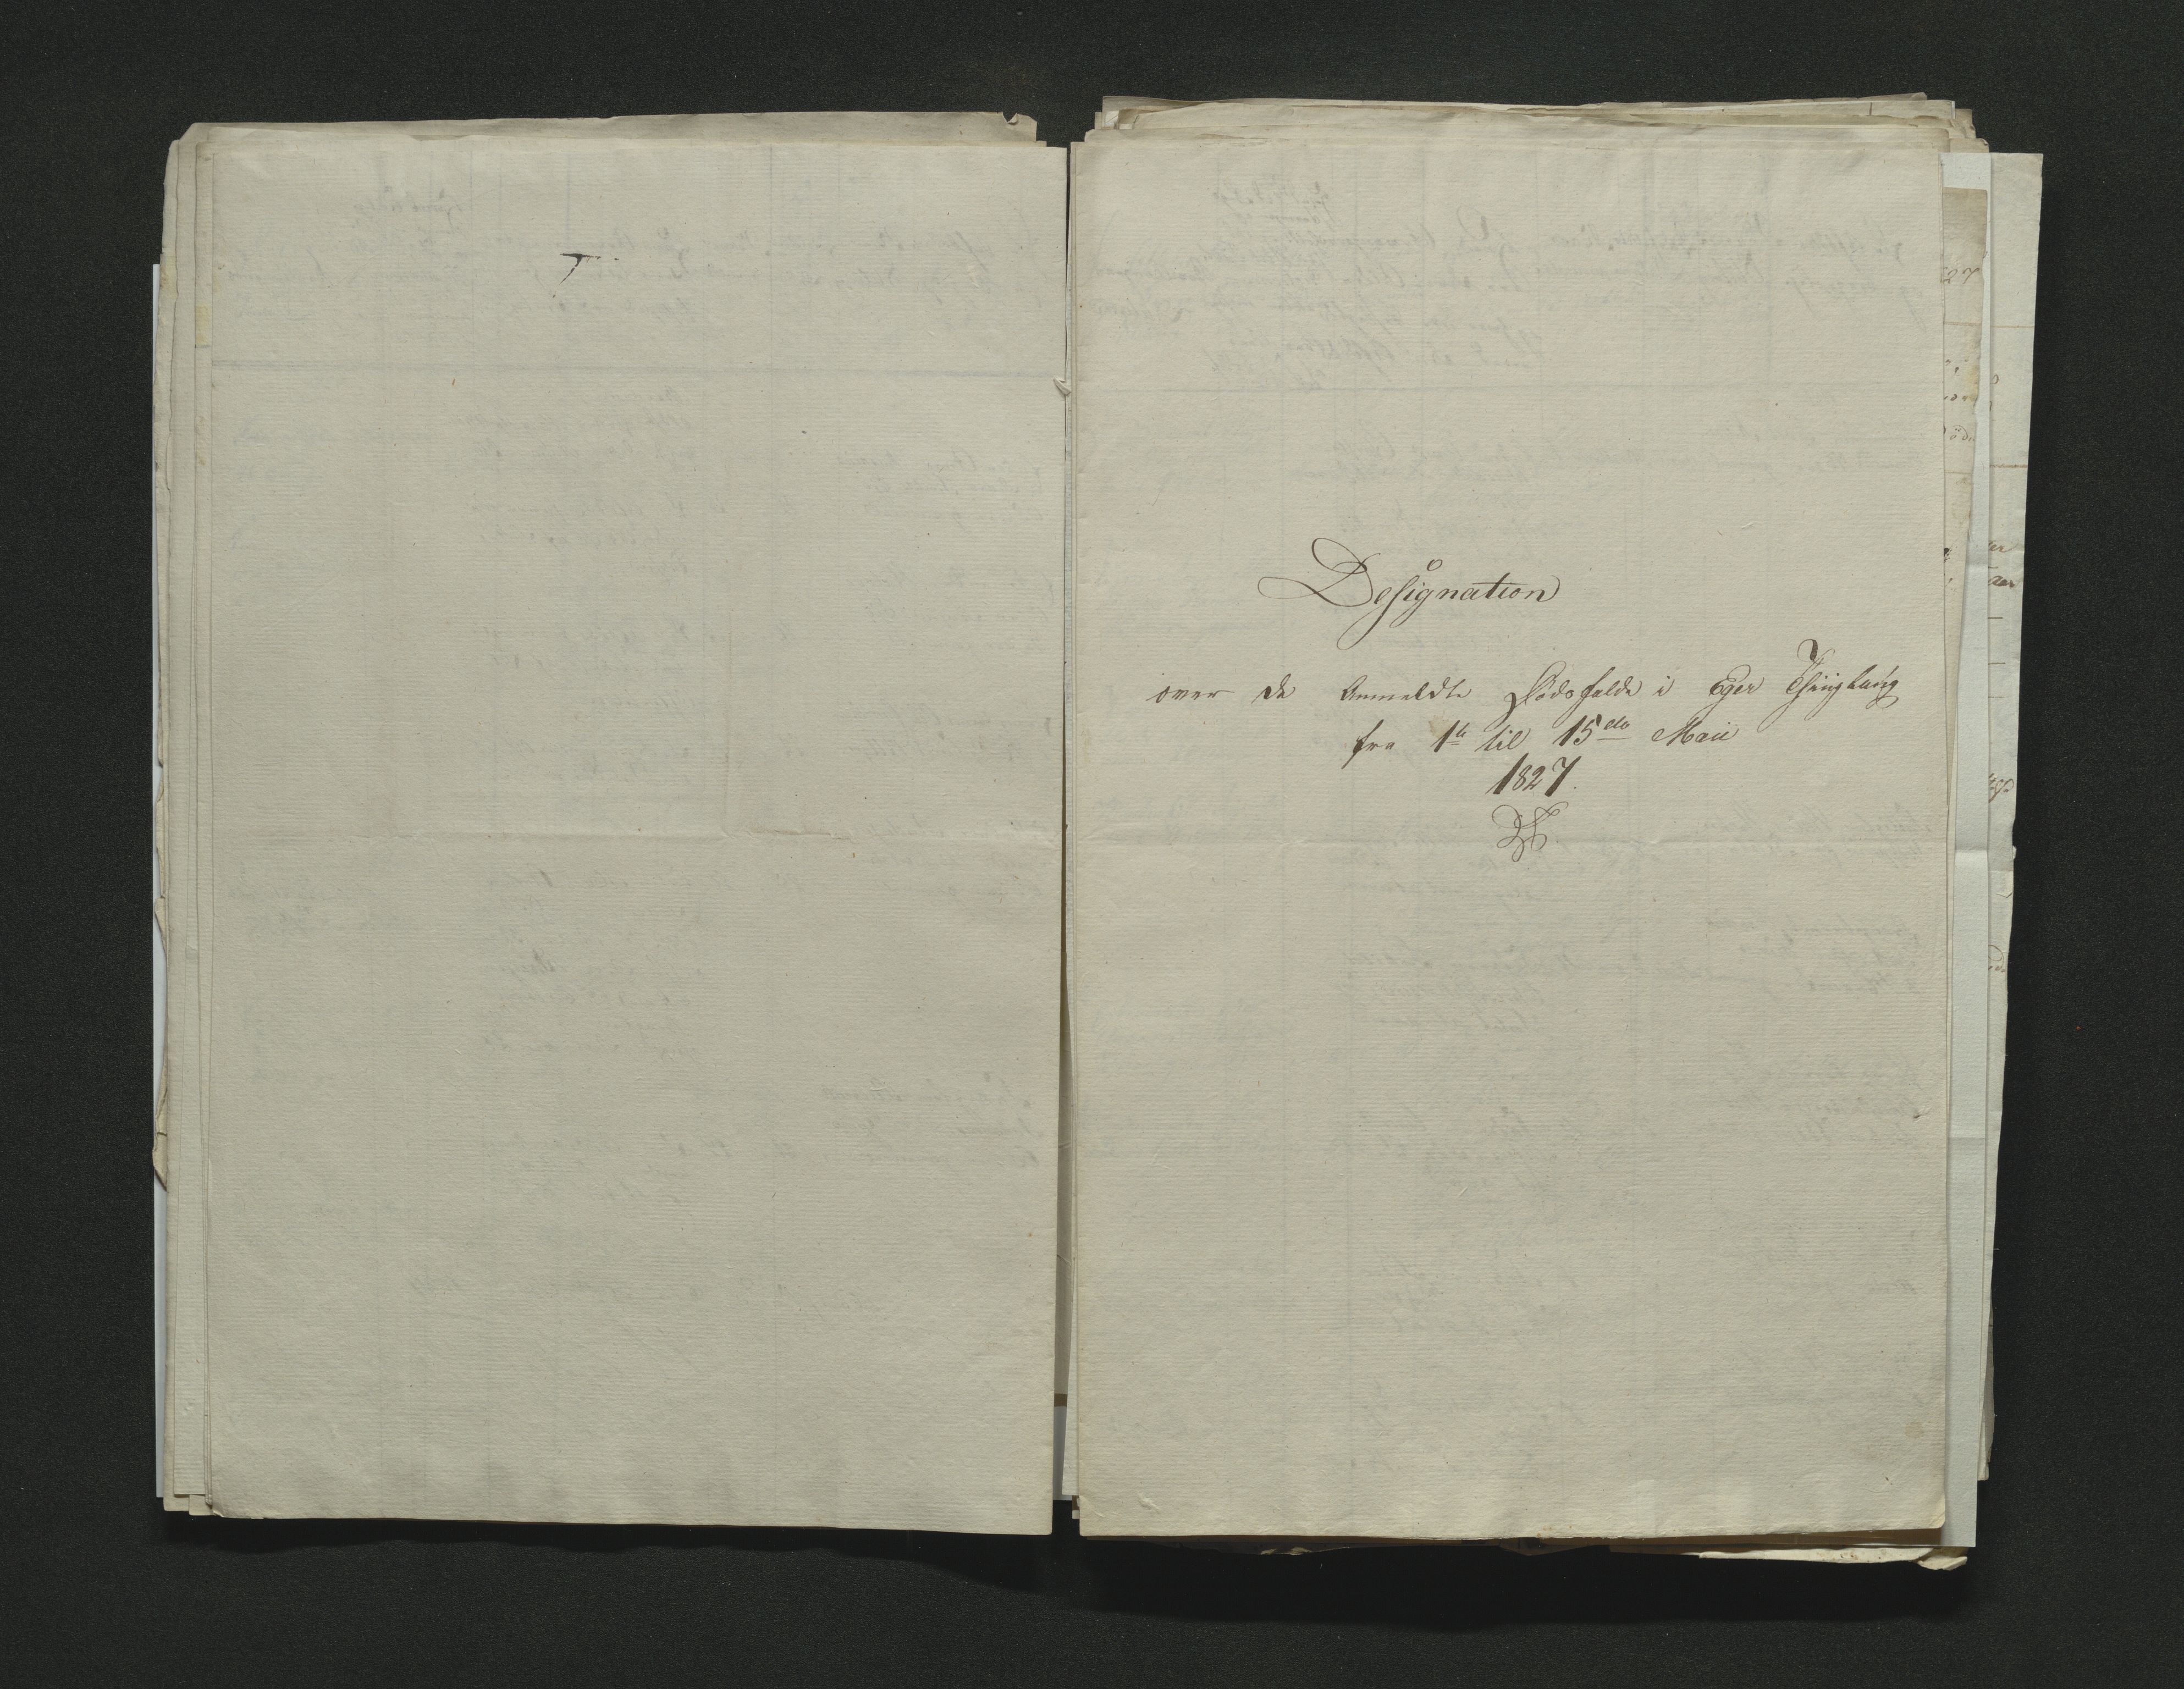 Designation
over de Anmeldte Dödsfalde i Eger Thinglaug
fra 1te til 15de Maii
1827.